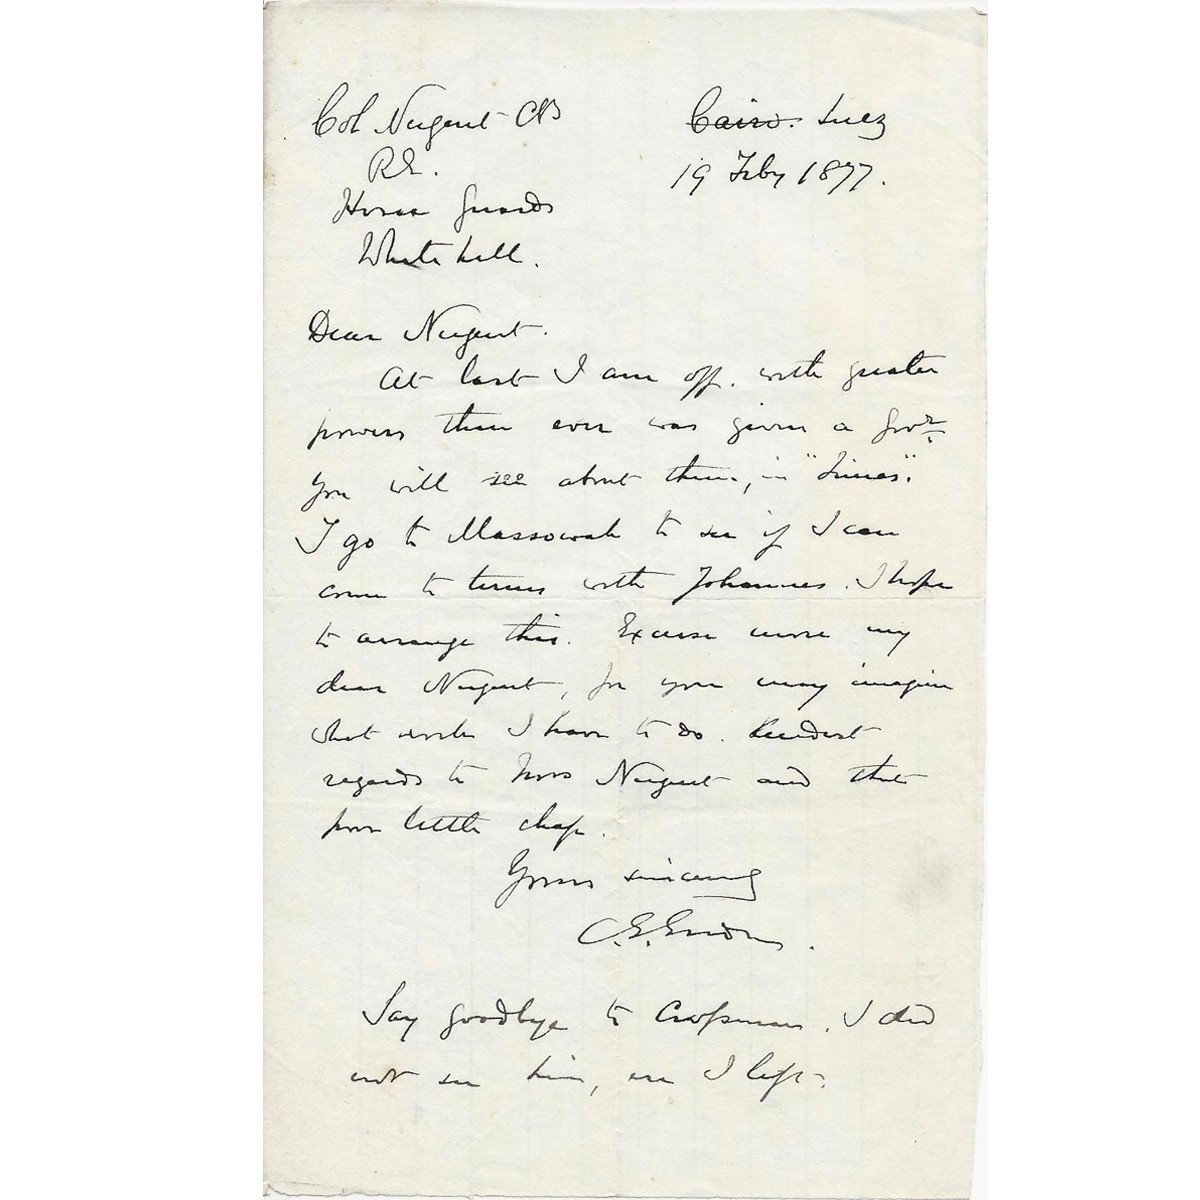 Col Nugent CB
Cairo. Suez
R.E.
19 Feby 1877.
Horse Guards
Whitehall.
Dear Nugent.
At last I am off. with greater
powers than ever was given a Govr.
You will see about them, in "Times".
I go to Massowah to see if I can
come to terms with Johannes. I hope
to arrange this. Excuse more my
dear Nugent, for you may imagine
what work I have to do. Kindest
regards to Mrs Nugent and that
poor little chap.
Yours sincerely
C. G. Gordon.
Say goodbye to Crossman. I did
not see him, ere I left.